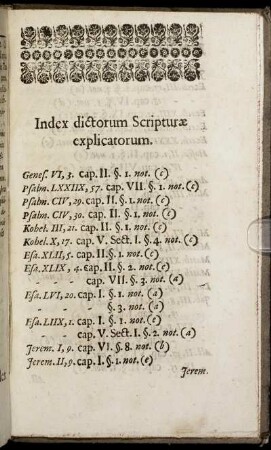 Index dictorum Scripturæ
explicatorum.
Genes. VI, 3. cap. II. §. 1. not. (c)
Psalm. LXXIIX, 57. cap. VII. §. 1. not. (c)
Psalm. CIV, 29. cap. II. §. 1. not. (c)
Psalm. CIV, 30. cap. II. §. 1. not. (c)
Kohel. III, 21. cap. II. §. 1. not. (c)
Kohel. X, 17. cap. V. Sect. I. §. 4. not. (c)
Esa. XLII, 5. cap. II. §. 1. not. (c)
Esa. XLIX, 4. cap. II. §. 2. not. (c)
- - cap. VII. §. 3. not. (a)
Esa. LVI, 20. cap. I. §. 1. not. (a)
- - §. 3. not. (a)
Esa. LIIX, 1. cap. I. §. 1. not. (c)
- - cap. V. Sect. I. §. 2. not. (a)
Jerem. I, 9. cap. VI. §. 8. not. (b)
Jerem. II, 9. cap. I. §. 1. not. (e)
Jerem.